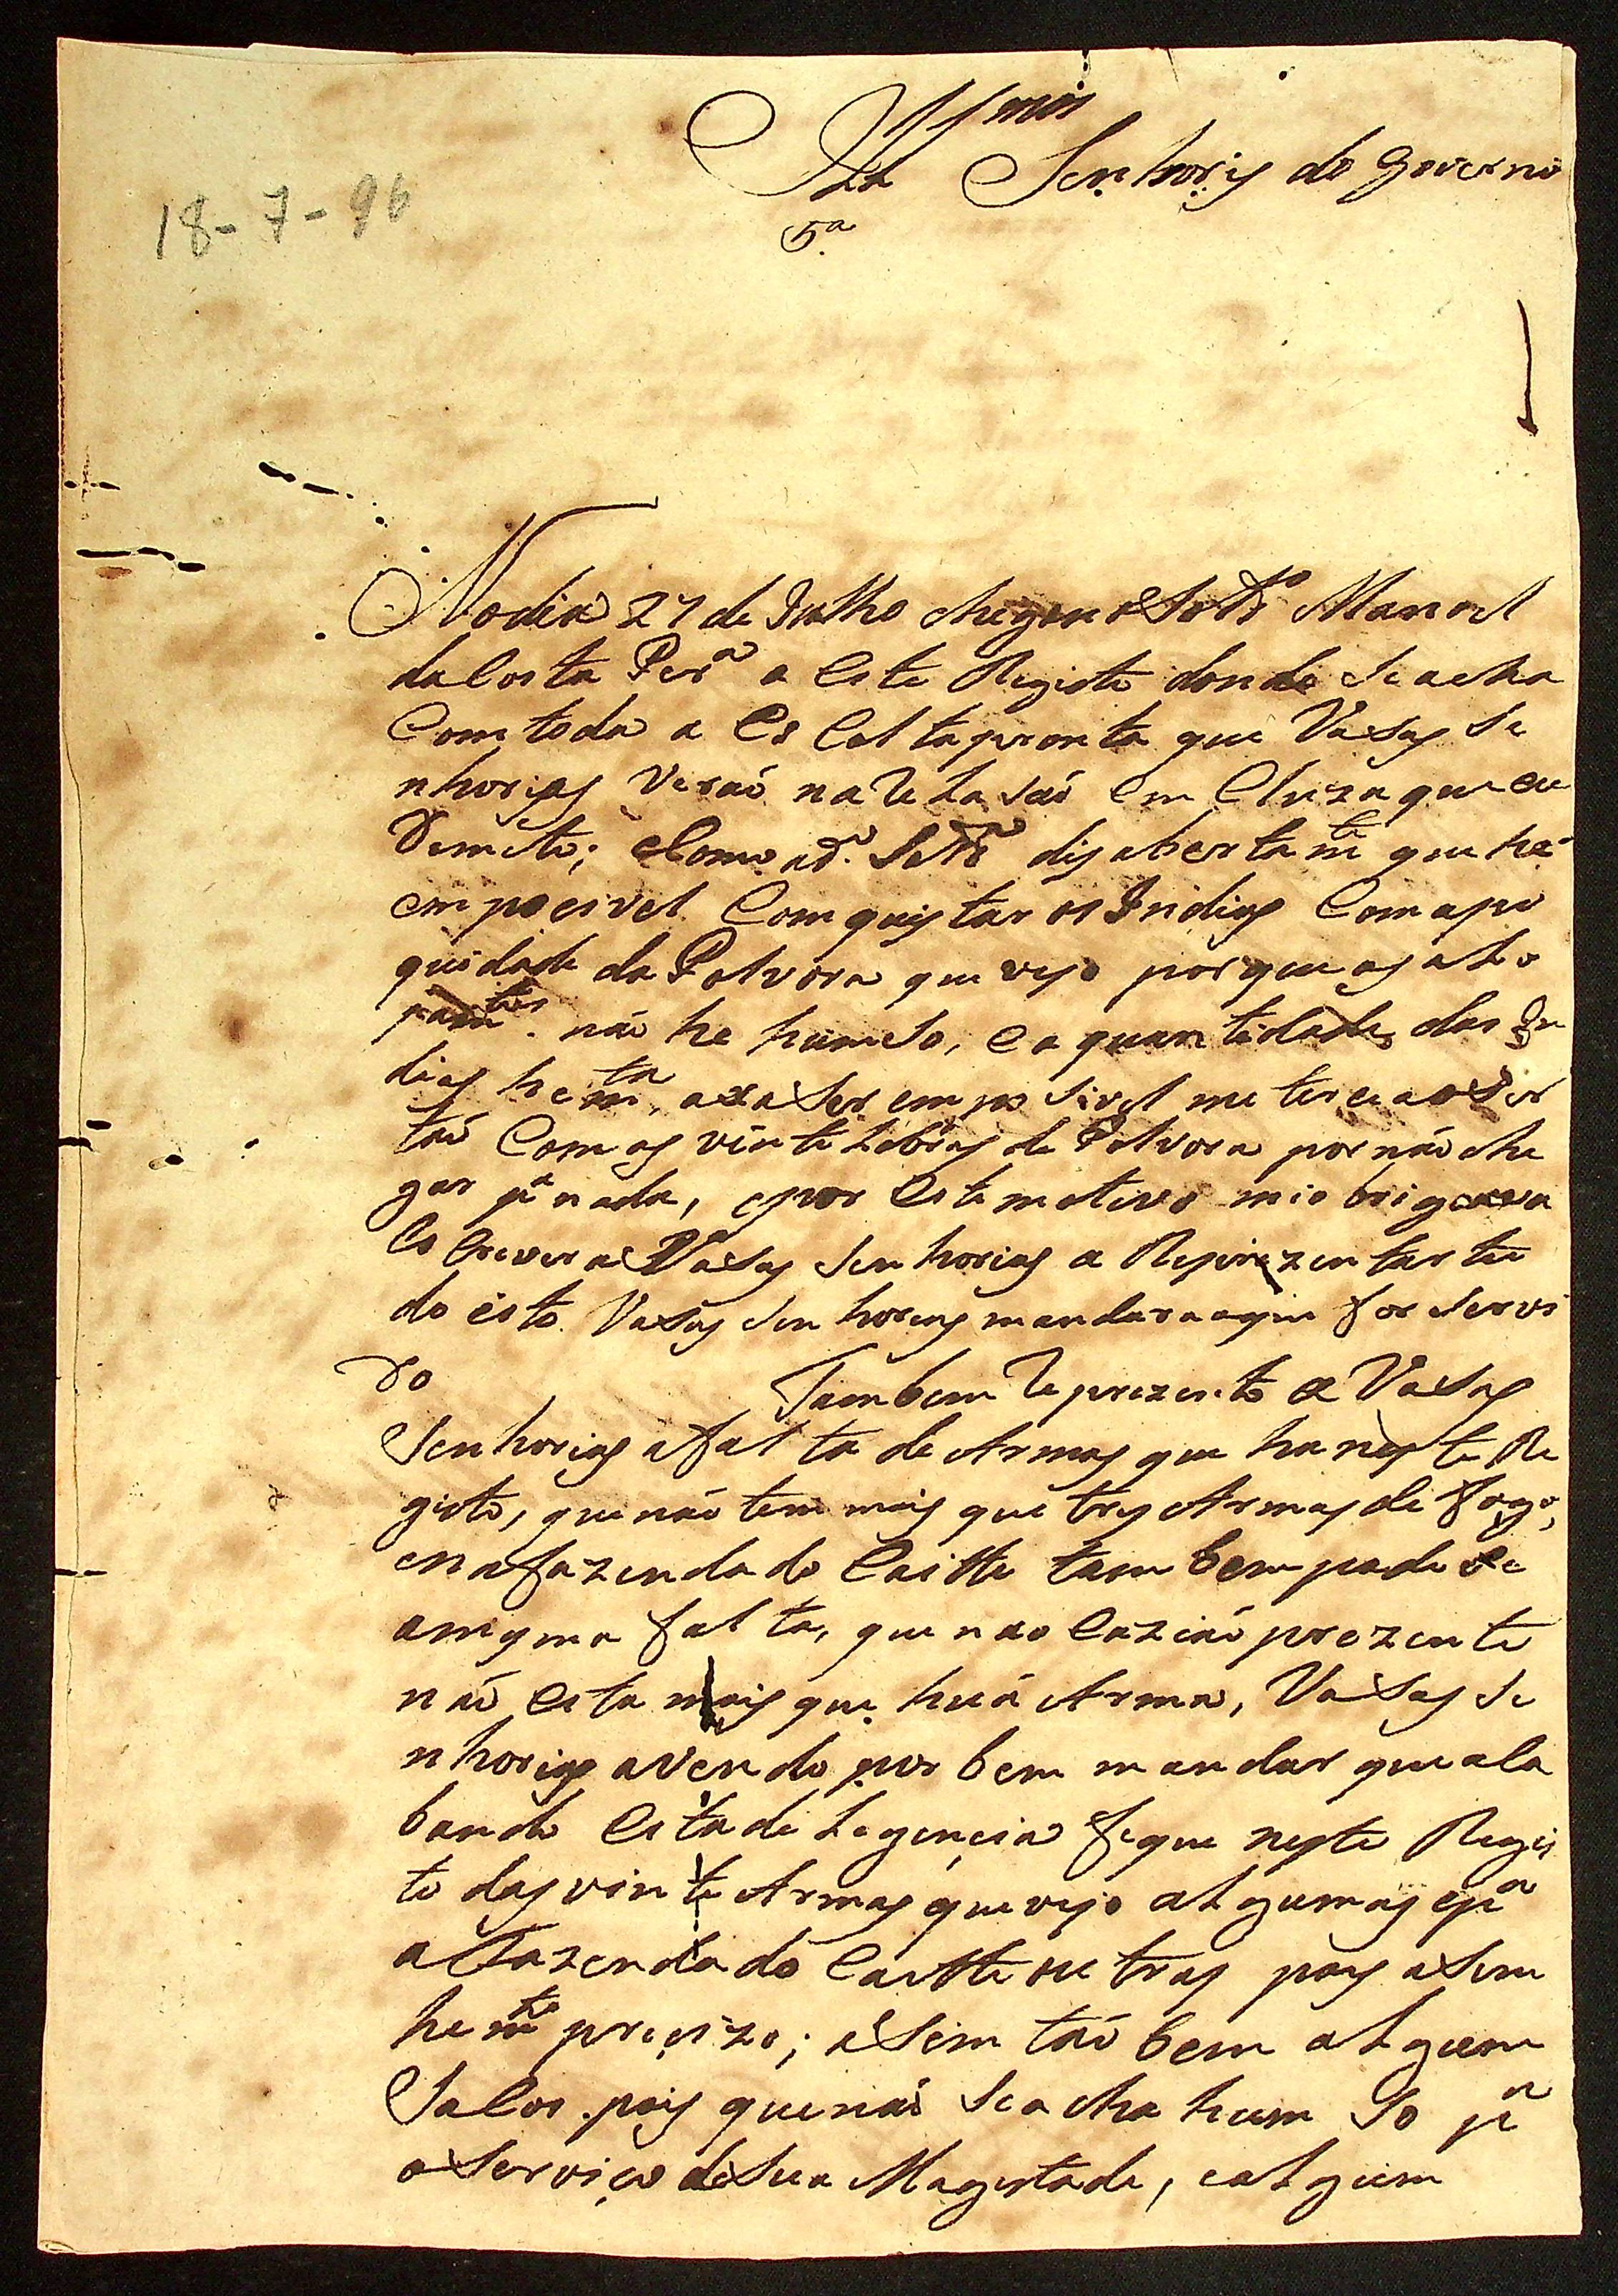 Ill.mos Senhoris do Governo
18-7-96
5.a
No dia 27 de Julho chegou o Sold.o Manoel
da Costa Per.a a este Registo donde se acha
Com toda a Escolta pronta que Vasas Se
nhorias verão na relasão em Cluza que eu
Remeto; Como a d.a Sold.a dis abertam.te que he
empocivel Comquistar os Indios Com a po
quidade da Polvora que vejo porque as alo
jam.tos não he hum só, e a quantidade dos In
dios he m.ta, a de Ser emposivel meterce ao Ser
tão Com as vinte Libras de Polvora por não che
gar p.a nada, e por este motivo mio brigava
Escrever a Vasas Senhorias a Reprezentar tu
do isto Vasas Senhorias mandara oque for Servi
do
Tambem reprezento a Vasas
Senhorias a falta de Armas que ha neste Re
gisto, que não tem mais que tres Armas de fogo,
e na fazenda do Caitte tambem padese
a mesma falta, que na o Caziaõ prezente
não esta mais que huã Arma, Vasas Se
nhorias avendo por bem mandar que aca
bando esta deLegencia fique neste Regis
to das vinte Armas que vejo algumas e p.a
a Fazenda do Caitte outras pois asim
he m.to precizo; asim tão bem algum
Sacos pois que não Se acha hum So p.a
o Serviço de Sua Magestade, e algum